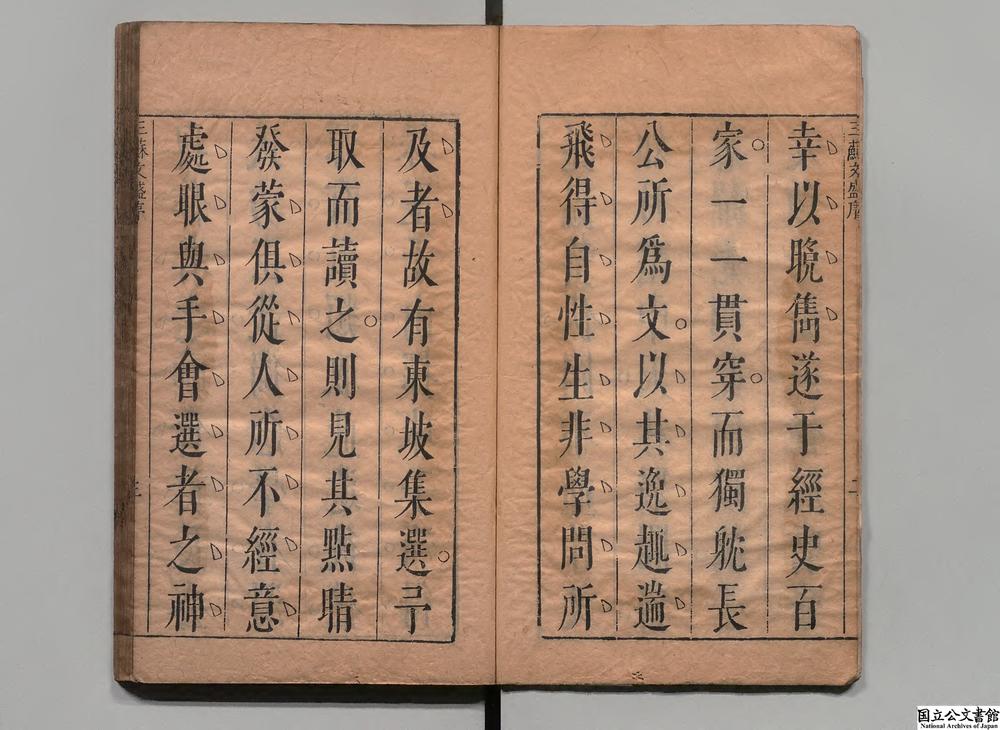 幸以晩雋遂于經史百
家一一貫穿而獨躭長
公所爲文以其逸趣遄
飛得自性生非學問所
及者故有東坡集選予
取而讀之則見其點睛
發蒙俱從人所不經意
處眼與手會選者之神
三蘇文盛序
三
国立公文書館
National Archives of Japan